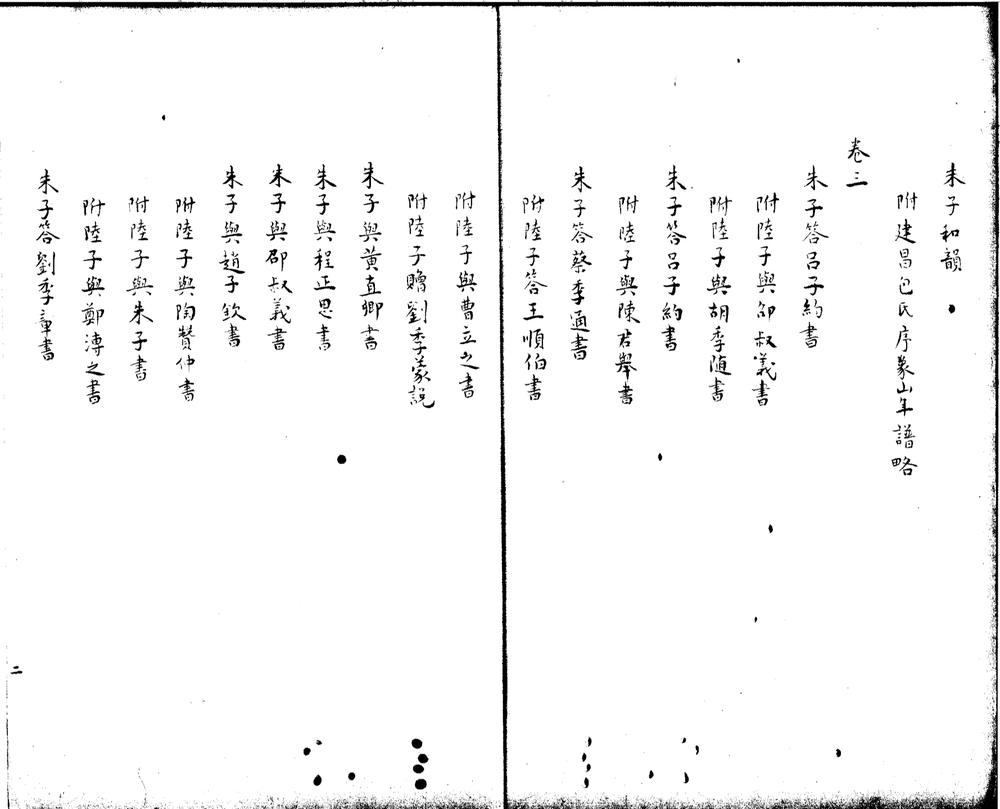 朱子和韻
附建昌包氏序象山年譜略
卷三
朱子答呂子約書
附陸子與邵叔義書
附陸子與胡季随書
朱子答呂子約書
附陸子與陳君舉書
朱子答蔡季通書
附陸子答王順伯書
附陸子與曹立之書
附陸子贈劉季蒙說
朱子與黃直卿書
朱子與程正思書
朱子與邵叔義書
朱子與趙子欽書
附陸子與陶贊仲書
附陸子與朱子書
附陸子與鄭溥之書
朱子答劉季章書
二